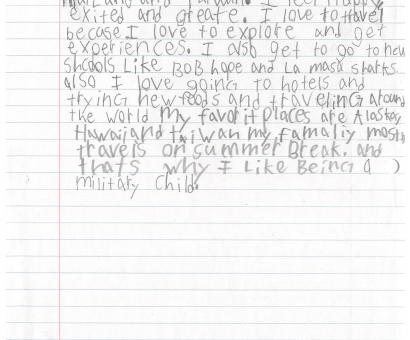 exited and greate. I love to travel
becase I love to explore and get
experiences. I also get to go to new
shcools Like BOB hope and La masa sharks.
also I love going to hotels and
trying new foods and traveling around
the world my favorit places are Alaska,
Hawaii and taiwan my famaliy mostly
travels on summer Break. and
thats why I Like Being a )
military child.